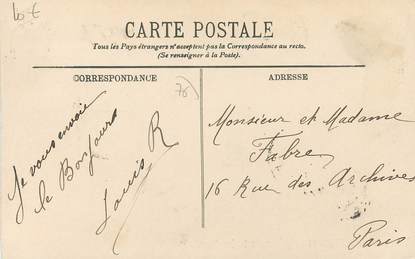 10 €
CARTE POSTALE
Tous les Pays étrangers n'acceptent pas la Correspondance au recto.
(Se renseigner à la Poste).
CORRESPONDANCE
76
Je vous envoie
le Bonjour
Louis R
ADRESSE
Monsieur et Madame
Fabre
16 Rue des Archives
Paris